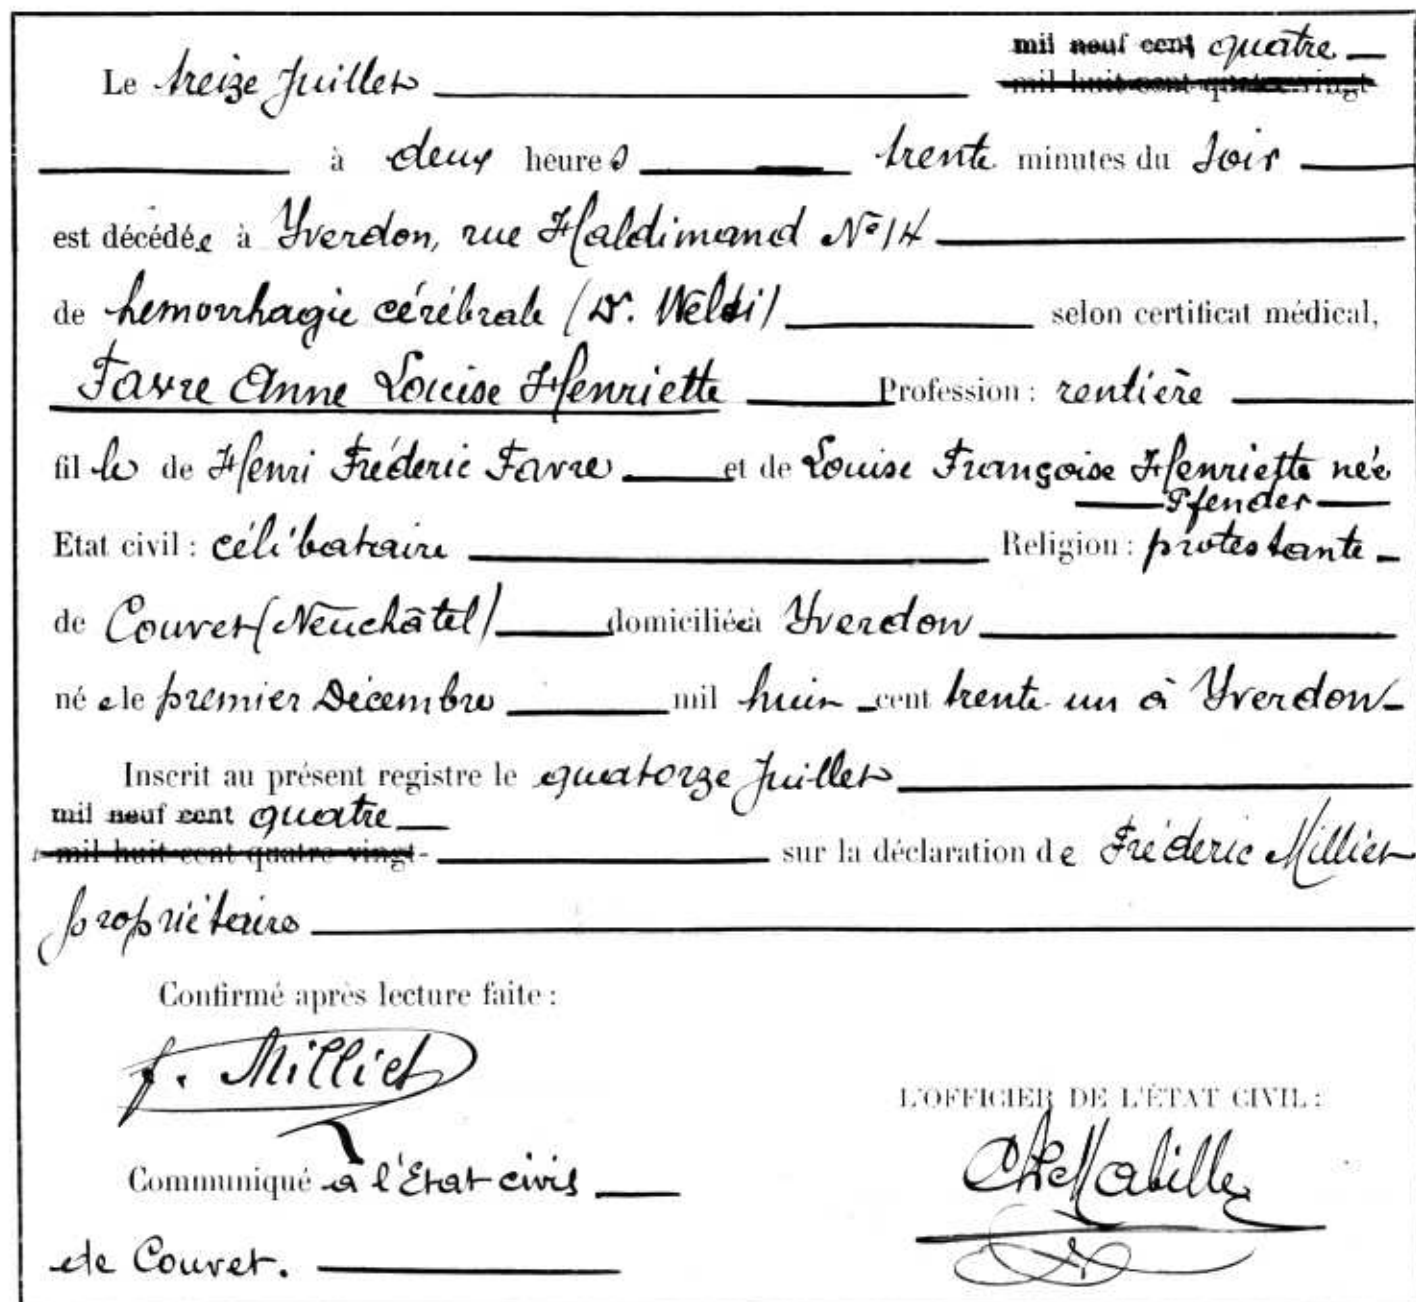 mil neuf cent quatre
Le treize Juillet mil huit cent quatre-vingt
à deux heures trente minutes du soir
est décédée à Yverdon, rue Haldimand No 14
de hemorrhagie cérébrale (Dr. Welti) selon certificat médical,
Favre Anne Louise Henriette Profession : rentière
fille de Henri Fréderic Favre et de Louise Françoise Henriette née
Pfender
Etat civil : célibataire Religion : protestante
de Couvet (Neuchâtel) domiciliée à Yverdon
née le premier Décembre mil huit cent trente un à Yverdon
Inscrit au présent registre le quatorze Juillet
mil neuf cent quatre
mil huit cent quatre-vingt- sur la déclaration de Fréderic Milliet
propriétaire
Confirmé après lecture faite :
f. Milliet
L'OFFICIER DE L'ÉTAT CIVIL :
Communiqué à l'Etat civil
de Couvet.